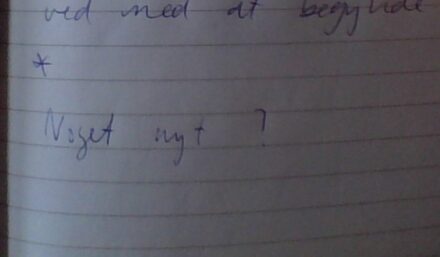 ved med at begynde
*
Noget nyt ?